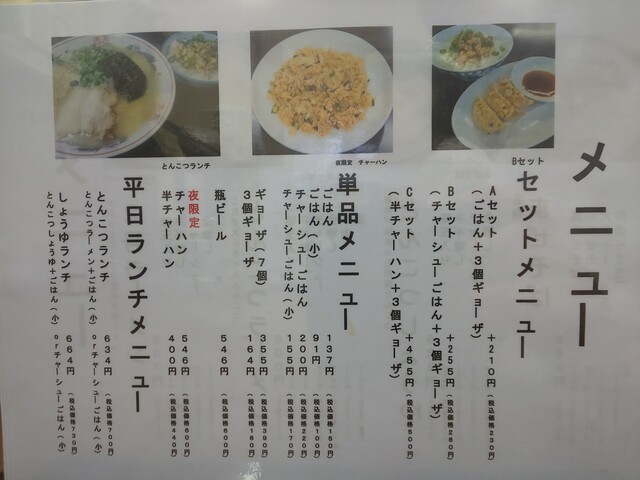 メニュー
セットメニュー
Aセット +210円(税込価格230円)
(ごはん+3個ギョーザ)
Bセット +255円(税込価格280円)
(チャーシューごはん+3個ギョーザ)
Cセット +455円(税込価格500円)
(半チャーハン+3個ギョーザ)
単品メニュー
ごはん 137円(税込価格150円)
ごはん(小) 91円(税込価格100円)
チャーシューごはん 200円(税込価格220円)
チャーシューごはん(小) 155円(税込価格170円)
ギョーザ(7個) 355円(税込価格390円)
3個ギョーザ 164円(税込価格180円)
瓶ビール 546円(税込価格600円)
夜限定
チャーハン 546円(税込価格600円)
半チャーハン 400円(税込価格440円)
平日ランチメニュー
とんこつランチ 634円(税込価格700円)
とんこつラーメン+ごはん(小)orチャーシューごはん(小)
しょうゆランチ 664円(税込価格730円)
とんこつしょうゆ+ごはん(小)orチャーシューごはん(小)
Bセット
夜限定 チャーハン
とんこつランチ